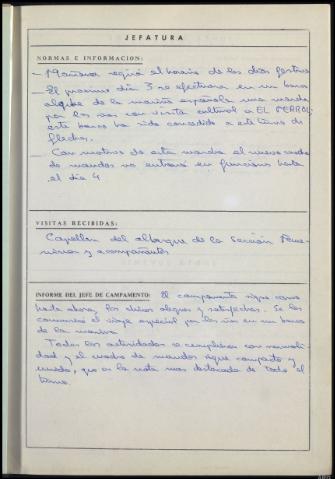 JEFATURA
NORMAS E INFORMACION:
- Mañana regirá el horario de los días festivos
- El proximo dia 3 se efectuara en un barco
de la marina española una marcha
por las rias con visita cultural a EL FERROL,
este barco ha sido concedido a este turno de
flechas.
- Con motivo de esta marcha el nuevo cuadro
de mandos no entrará en funciones hasta
el dia 4
VISITAS RECIBIDAS:
Capellan del albergue de la Sección Feme-
nina y acompañantes
INFORME DEL JEFE DE CAMPAMENTO: El campamento sigue como
hasta ahora, los chicos alegres y satisfechos. Se les
comunica el viaje especial por las rias en un barco
de la marina.
Todas las actividades se cumplieron con normali-
dad y el cuadro de mandos sigue compacto y
unido, que es la nota mas destacada de todo el
turno.